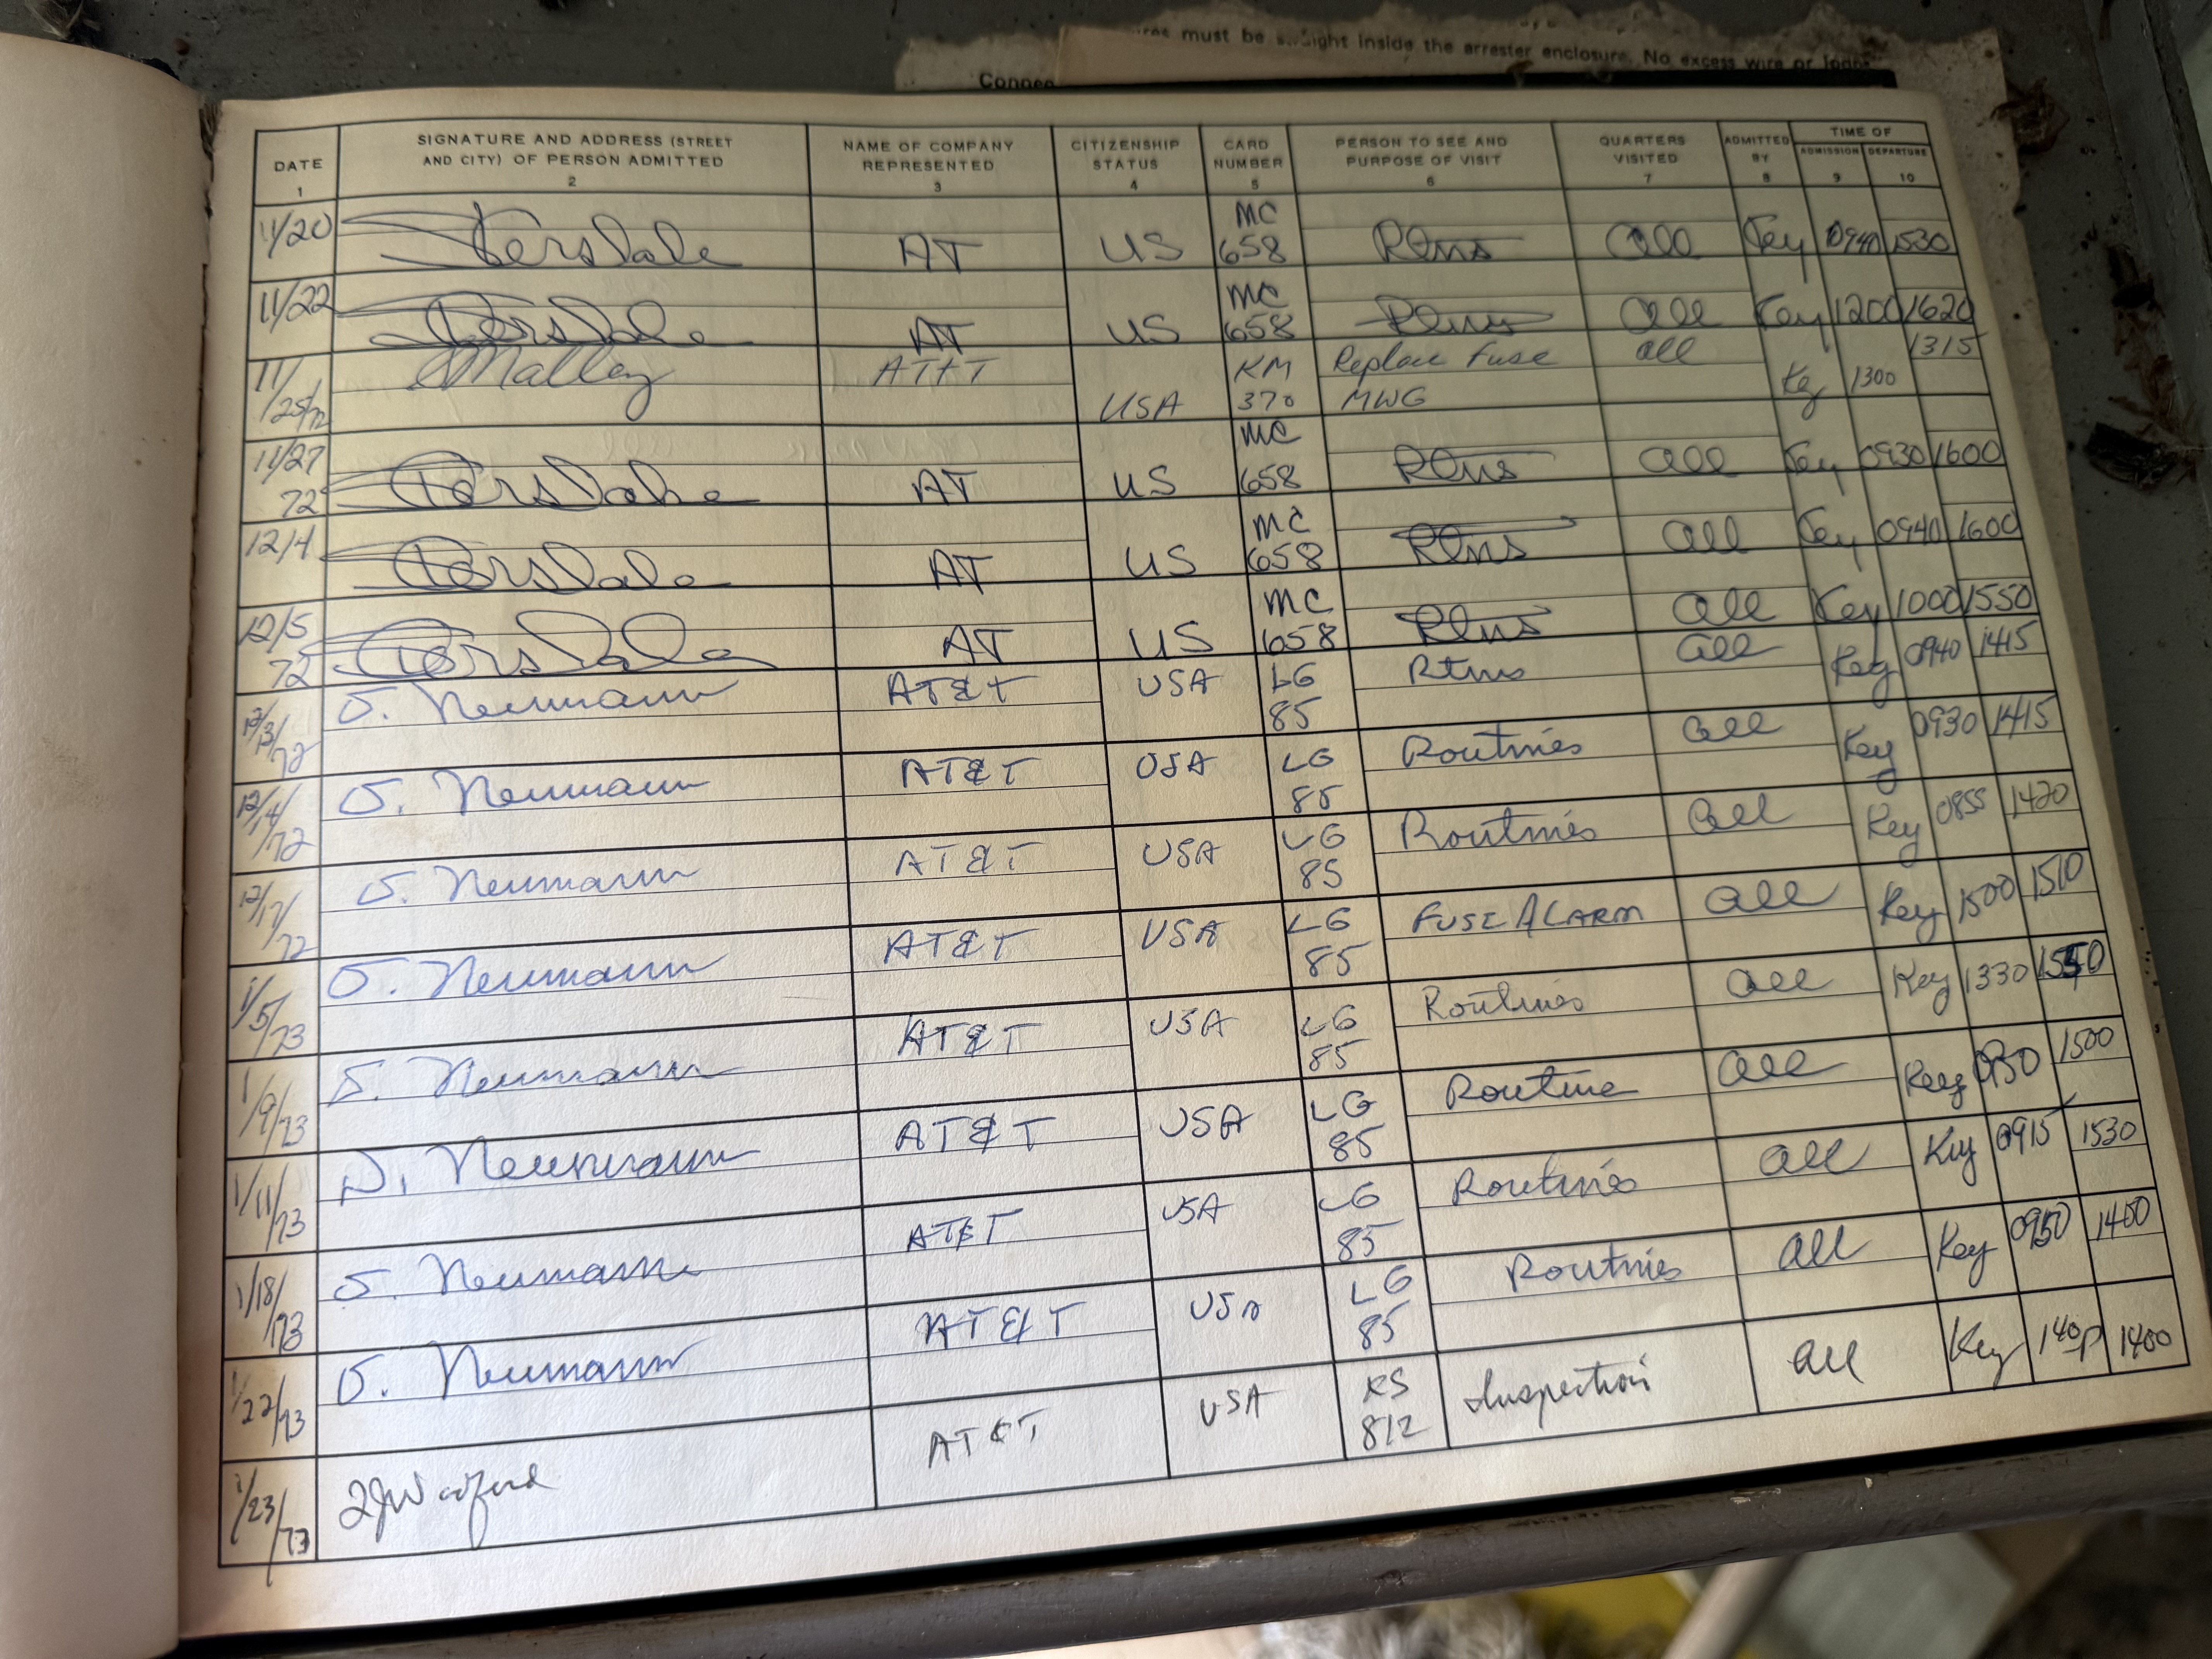 must be straight inside the arrester enclosure. No excess wire or
Connec
DATE 1
SIGNATURE AND ADDRESS (STREET AND CITY) OF PERSON ADMITTED 2
NAME OF COMPANY REPRESENTED 3
CITIZENSHIP STATUS 4
CARD NUMBER 5
PERSON TO SEE AND PURPOSE OF VISIT 6
QUARTERS VISITED 7
ADMITTED BY 8
TIME OF
ADMISSION 9
DEPARTURE 10
11/20 AT US MC 658 Rtns All Key 0940 1530
11/22 AT US MC 658 Rtns All Key 1200 1620
11/25/72 Malley AT&T USA KM 370 Replace Fuse MWG all Key 1300 1315
11/27 72 AT US MC 658 Rtns All Key 0930 1600
12/4 AT US MC 658 Rtns All Key 0940 1600
12/5 72 AT US MC 658 Rtns All Key 1000 1550
12/13/72 Neumann AT&T USA LG 85 Rtns all Key 0940 1415
12/14/72 Neumann AT&T USA LG 85 Routines all Key 0930 1415
12/17/72 Neumann AT&T USA LG 85 Routines all Key 0855 1420
1/5/73 Neumann AT&T USA LG 85 FUSE ALARM all Key 1500 1510
1/9/73 Neumann AT&T USA LG 85 Routines all Key 1330
1/11/73 Neumann AT&T USA LG 85 Routine all Key 1500
1/18/73 Neumann AT&T USA LG 85 Routines all Key 0915 1530
1/22/73 Neumann AT&T USA LG 85 Routines all Key 0950
1/23/73 AT&T USA KS 812 Inspection all Key 1400